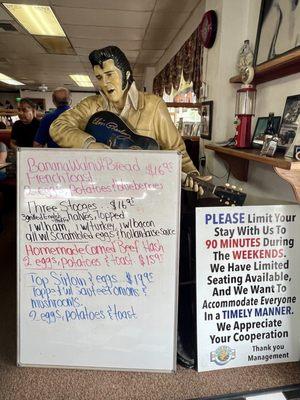 Banana Walnut Bread $16.95
French Toast
2 eggs, Potatoes & blueberries
Three Stooges $16.95
halves, topped
w/ ham, w/ turkey, w/ bacon
all w/ scrambled eggs & hollandaise sauce
Homemade Corned Beef Hash
2 eggs, potatoes & toast $18.95
Top Sirloin & eggs $19.95
Topped w/ sauteed onions &
mushrooms.
2 eggs, potatoes & toast
PLEASE Limit Your
Stay With Us To
90 MINUTES During
The WEEKENDS.
We Have Limited
Seating Available,
And We Want To
Accommodate Everyone
In a TIMELY MANNER.
We Appreciate
Your Cooperation
Thank you
Management